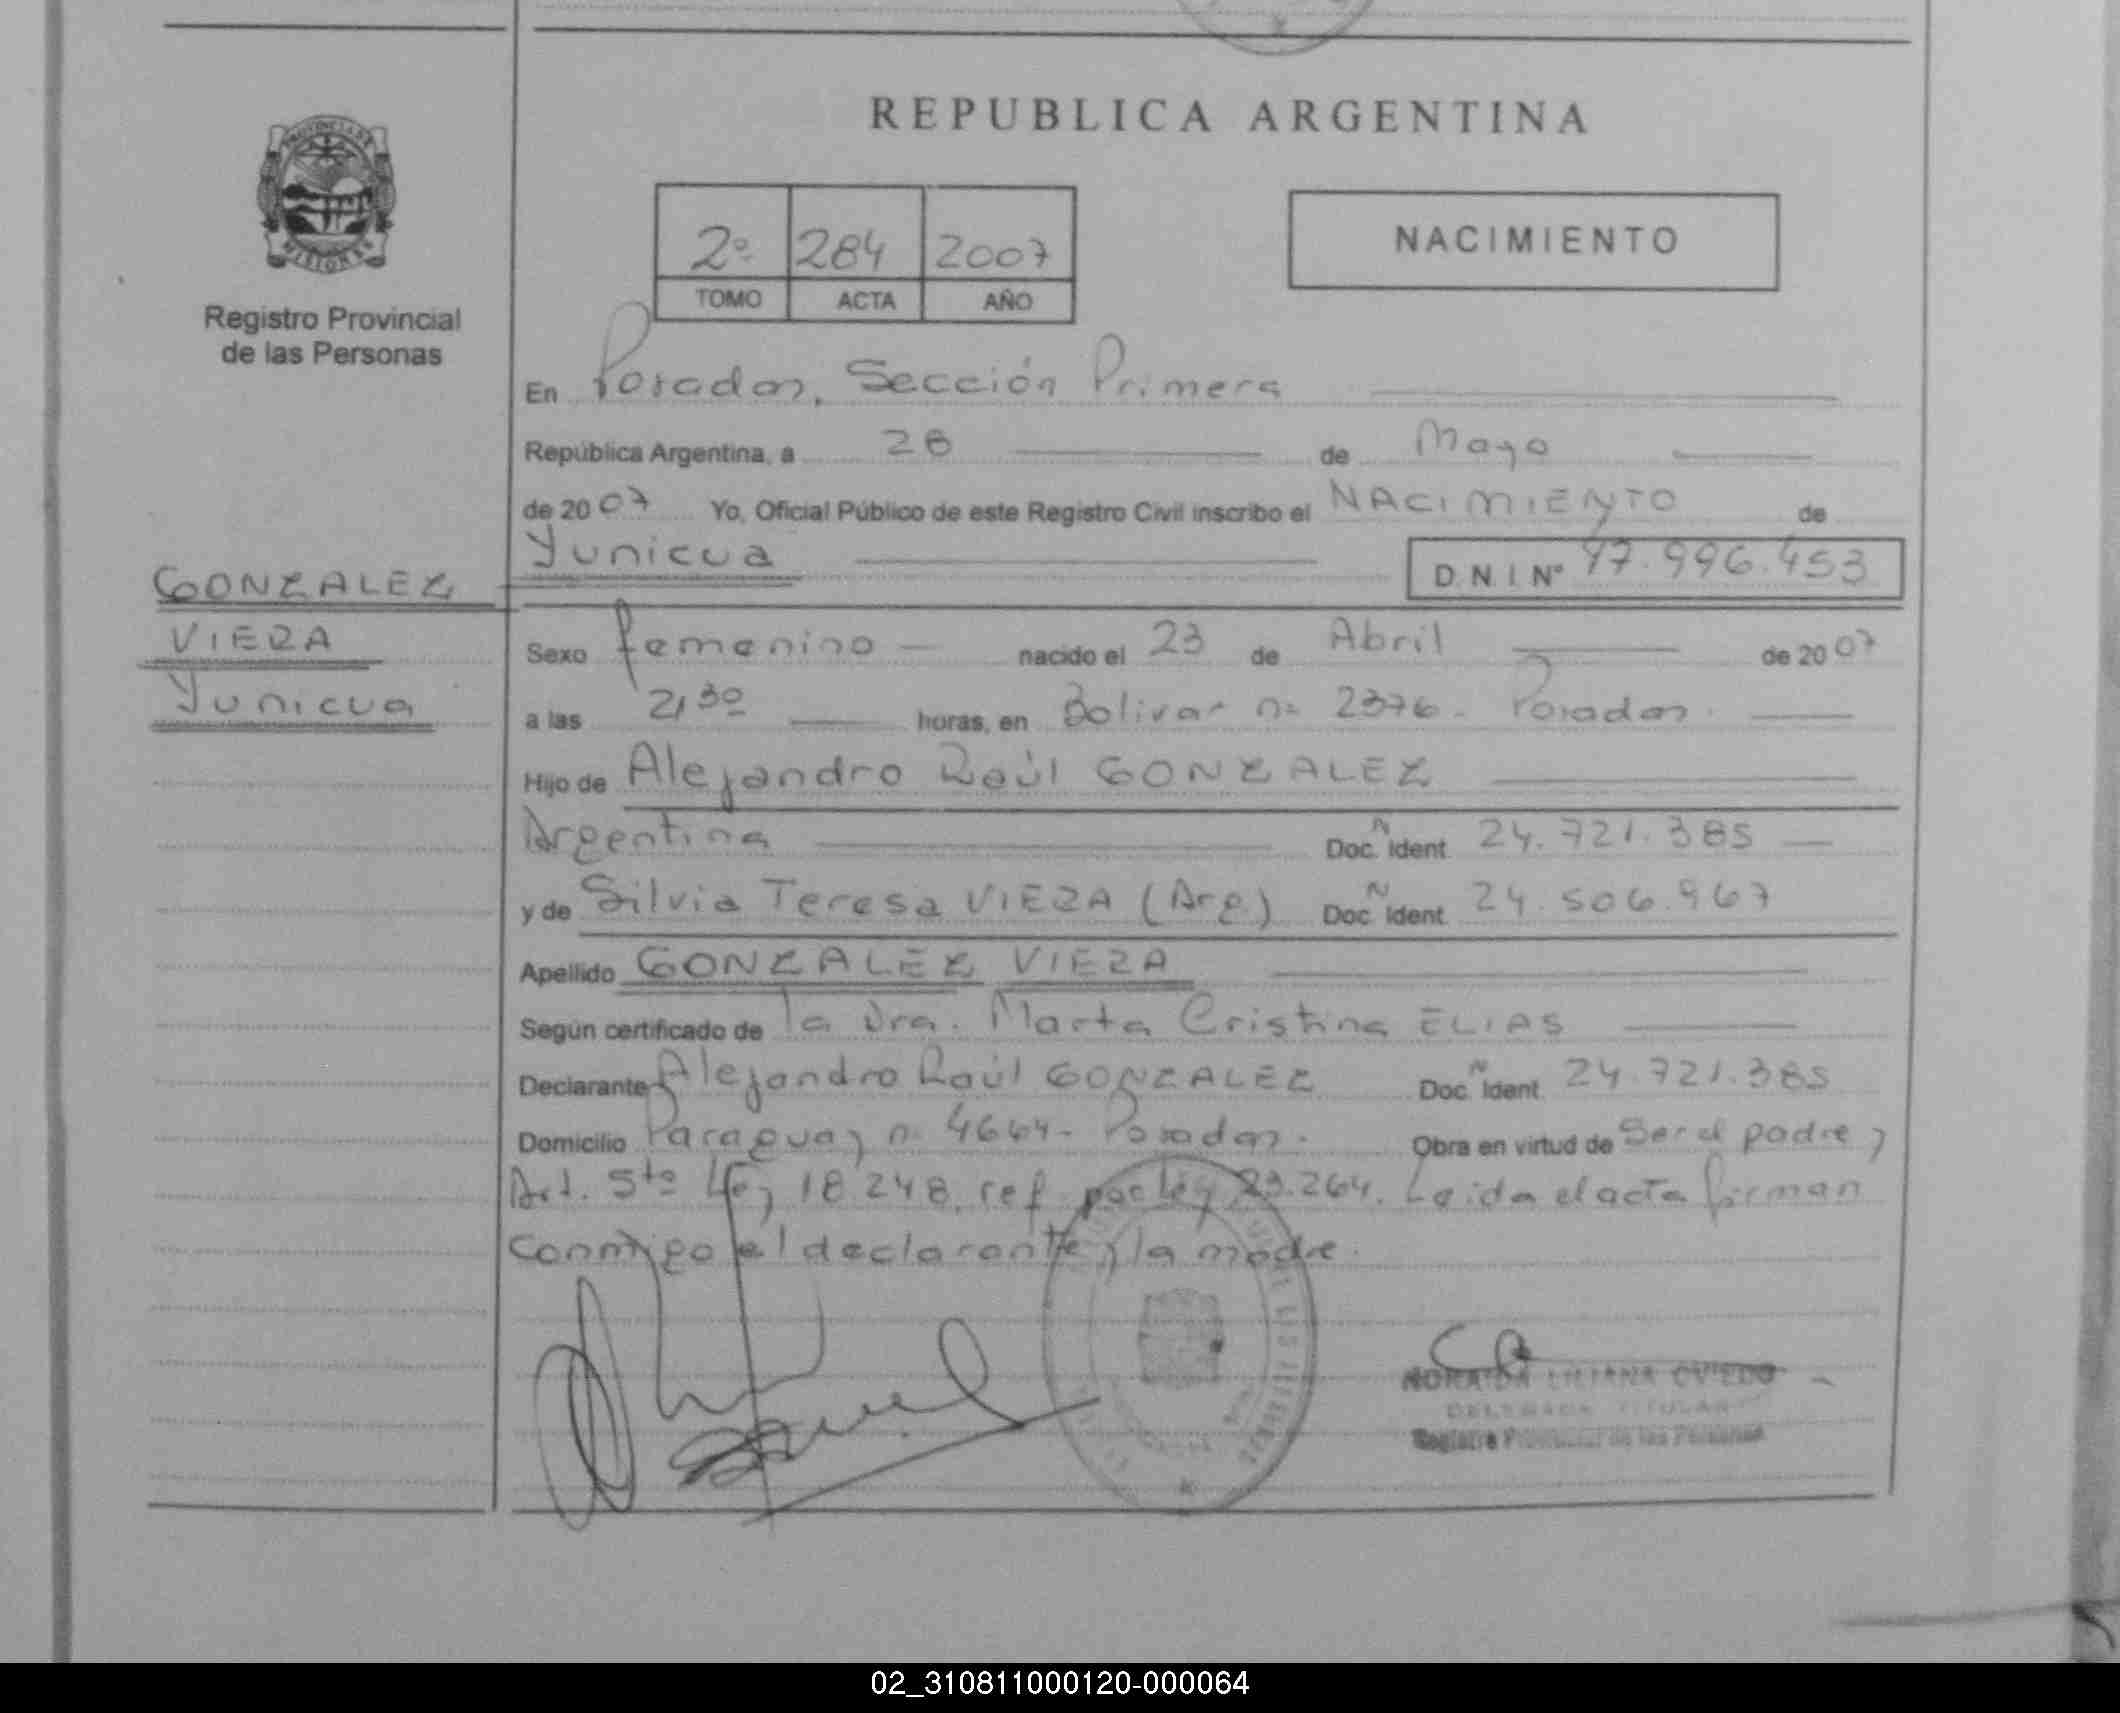 REPUBLICA ARGENTINA
PROVINCIA DE
MISIONES
Registro Provincial
de las Personas
2º 284 2007
TOMO ACTA AÑO
NACIMIENTO
En Posadas, Sección Primera
República Argentina, a 28 de Mayo
de 2007 Yo, Oficial Público de este Registro Civil inscribo el NACIMIENTO de
Yunicua D.N.I. Nº 47.996.453
GONZALEZ
VIERA
Yunicua
Sexo femenino nacido el 23 de Abril de 2007
a las 21,30 horas, en Bolivar nº 2376 - Posadas.
Hijo de Alejandro Raúl GONZALEZ
Argentina Doc. Ident. Nº 24.721.385
y de Silvia Teresa VIERA (Arg) Doc. Ident. Nº 24.506.967
Apellido GONZALEZ VIERA
Según certificado de la Dra. Marta Cristina ELIAS
Declarante Alejandro Raúl GONZALEZ Doc. Ident. Nº 24.721.385
Domicilio Paraguay nº 4664 - Posadas. Obra en virtud de Ser el padre y
Art. 5to Ley 18.248, ref. por Ley 23.264. Leida el acta firman
conmigo el declarante y la madre.
LILIANA OVIEDO
DELEGADA TITULAR
Registro Provincial de las Personas
02_310811000120-000064